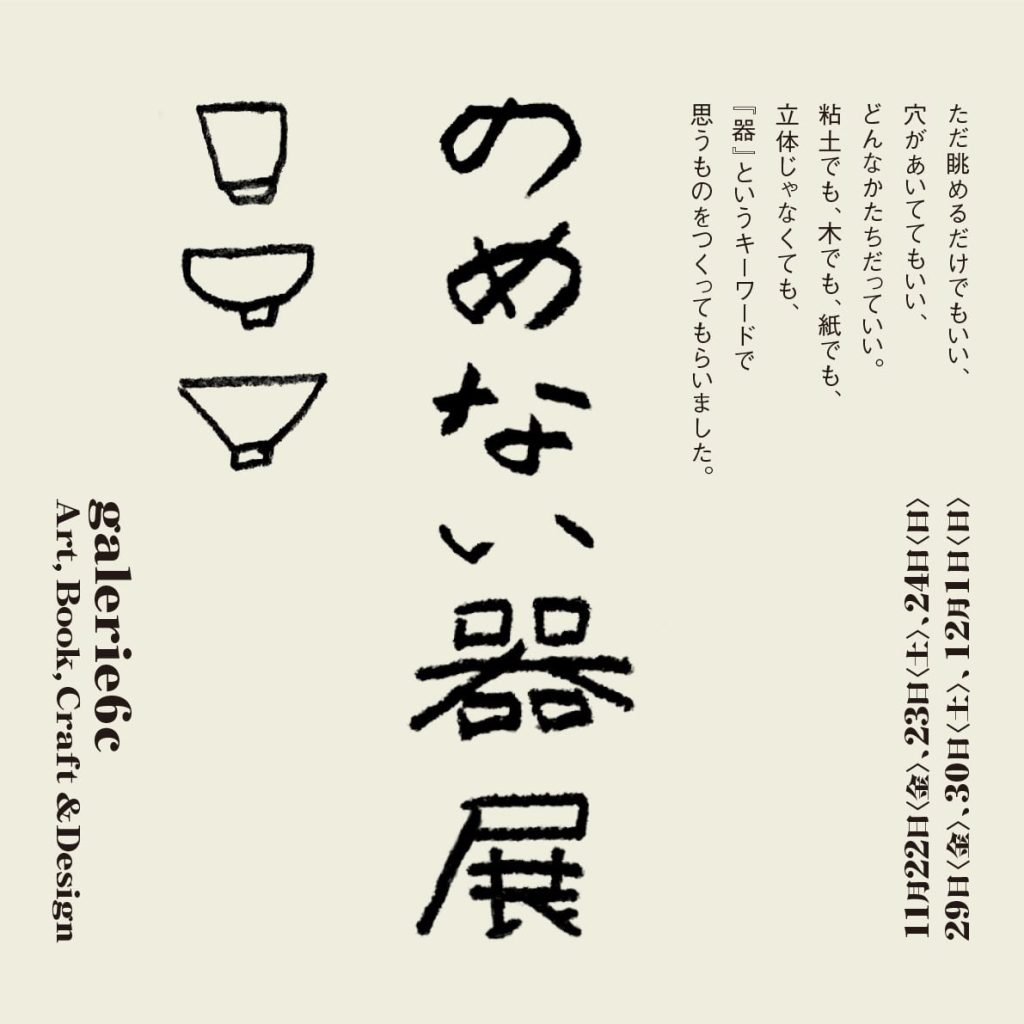 ただ眺めるだけでもいい、
穴があいててもいい、
どんなかたちだっていい。
粘土でも、木でも、紙でも、
立体じゃなくても、
『器』というキーワードで
思うものをつくってもらいました。
のめない器展
11月22日〈金〉、23日〈土〉、24日〈日〉
29日〈金〉、30日〈土〉、12月1日〈日〉
galerie6c
Art, Book, Craft &Design